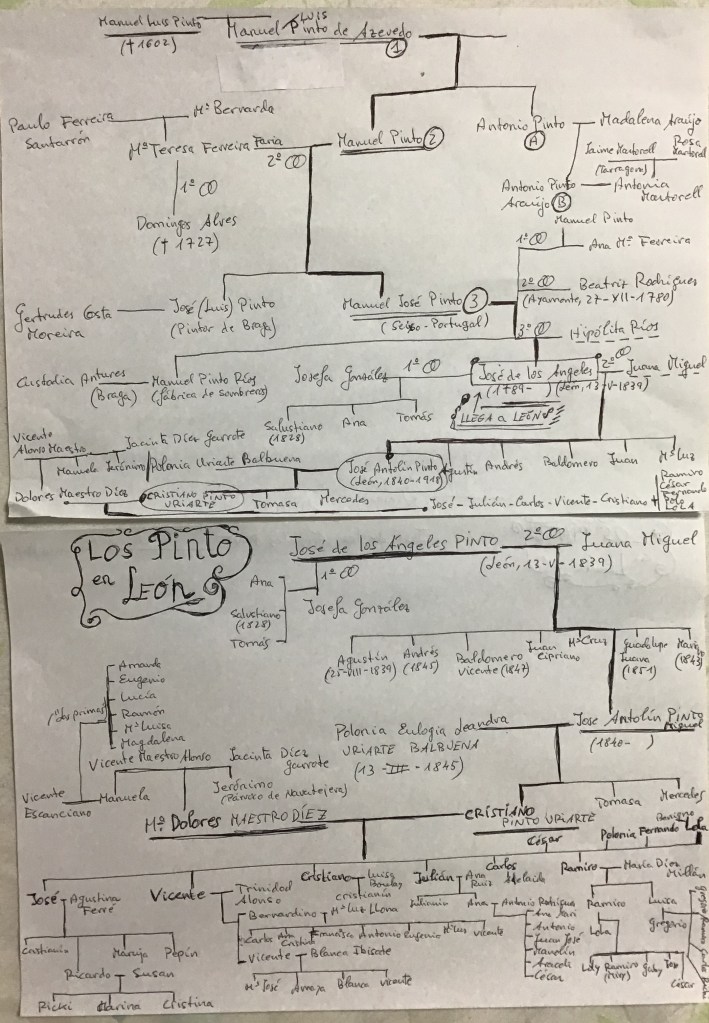 Manuel Luis Pinto
(† 1602)
Manuel Luis Pinto de Azevedo
1
Paulo Ferreira
Santarrón
Mª Bernarda
Mª Teresa Ferreira Faria
2º
Manuel Pinto 2
Antonio Pinto
A
Madalena Araújo
Jaime Martorell
(Tarragona)
Rosa
Martorell
Antonio Pinto
Araújo B
Antonia
Martorell
1º
Domingos Alves
(† 1727)
Manuel Pinto
1º
Ana Mª Ferreira
2º
Beatriz Rodrigues
(Ayamonte, 27-XII-1780)
Gertrudes Costa
Moreira
José (Luis) Pinto
(Pintor de Braga)
Manuel José Pinto 3
(Seixo-Portugal)
3º
Hipólita Ríos
Custodia Antures
(Braga)
Manuel Pinto Ríos
(fábrica de Sombreros)
Josefa González
1º
José de los Angeles
(1789-
2º
(León, 13-V-1839)
Juana Miguel
Salustiano
(1828)
Ana
Tomás
LLEGA a LEÓN
Vicente
Alonso Maestro
Jacinta Díez Garrote
Manuela
Jerónimo
Polonia Uriarte Balbuena
José Antolín Pinto
(León, 1840-1918)
Agustín
Andrés
Baldomero
Juan
Mª Luz
Dolores Maestro Díez
CRISTIANO PINTO
URIARTE
Tomasa
Mercedes
José-Julián-Carlos-Vicente-Cristiano
Ramiro
César
Fernando
Polo
LOLA
Los Pinto
en
León
José de los Ángeles PINTO
2º
Juana Miguel
(León, 13-V-1839)
1º
Ana
Salustiano
(1828)
Tomás
Josefa González
Agustín
(25-VIII-1839)
Andrés
(1845)
Baldomero
Vicente (1847)
Juan
Cipriano
Mª Cruz
Guadalupe
Juana
(1851)
María
(1843)
Amando
Eugenio
Lucía
Ramón
Mª Luisa
Magdalena
"los primos"
Polonia Eulogia Leandra
URIARTE BALBUENA
(13-III-1845)
José Antolín PINTO
Miguel
(1840- )
Vicente Maestro Alonso
Jacinta Díez
Garrote
Vicente
Escanciano
Manuela
Jerónimo
(Párroco de Navatejera)
Mª Dolores MAESTRO DÍEZ
CRISTIANO
PINTO URIARTE
Tomasa
Mercedes
César
Polonia
Fernando
Benigno
Lola
José
Agustina
Ferré
Vicente
Trinidad
Alonso
Cristiano
Luisa
Julián
Ana
Ruiz
Carlos
Adelaida
Ramiro
María Díez
Millán
Cristianín
Bernardino
Mª Luz Llona
Julianín
Ana
Antonio Rodrigua
Ramiro
Luisa
Cristianín
Maruja
Pepín
Carlos
Ana
Cristina
Francisco
Antonio
Eugenio
Mª Luz
Vicente
Ana Mari
Antonio
Juan José
Manolín
Araceli
César
Lola
Gregorio
Ricardo
Susan
Vicente
Blanca Ibisate
Ricki
Marina
Cristina
Mª José
Amaya
Blanca
Vicente
Loly
Ramiro
Gaby
César